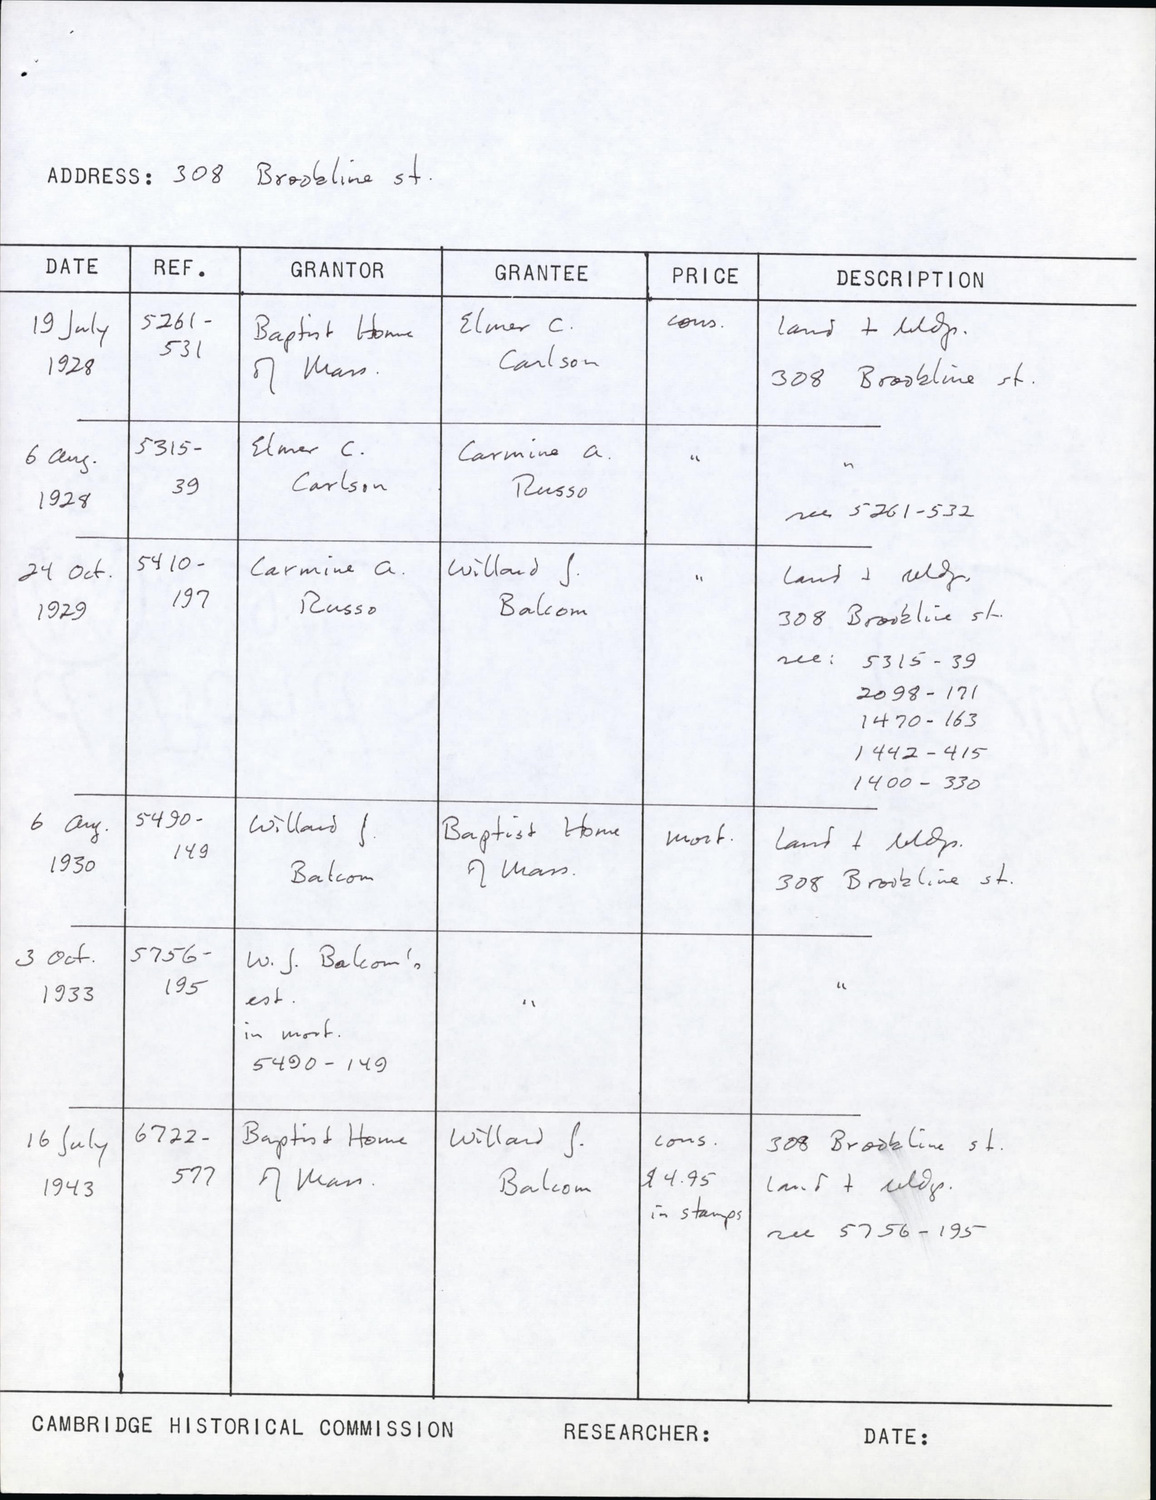 ADDRESS: 308 Brookline st.
DATE REF. GRANTOR GRANTEE PRICE DESCRIPTION
19 July
1928
5261-
531
Baptist Home
of Mass.
Elmer C.
Carlson
cons.
land + bldgs.
308 Brookline st.
6 Aug.
1928
5315-
39
Elmer C.
Carlson
Carmine A.
Russo
"
"
see 5261-532
24 Oct.
1929
5410-
197
Carmine A.
Russo
Willard J.
Balcom
"
land + bldgs.
308 Brookline st.
see: 5315-39
2098-171
1470-163
1442-415
1400-330
6 Aug.
1930
5490-
149
Willard J.
Balcom
Baptist Home
of Mass.
mort.
land + bldgs.
308 Brookline st.
3 Oct.
1933
5756-
195
W. J. Balcom's
est.
in mort.
5490-149
"
"
16 July
1943
6722-
577
Baptist Home
of Mass.
Willard J.
Balcom
cons.
$4.95
in stamps
308 Brookline st.
land + bldgs.
see 5756-195
CAMBRIDGE HISTORICAL COMMISSION RESEARCHER: DATE: